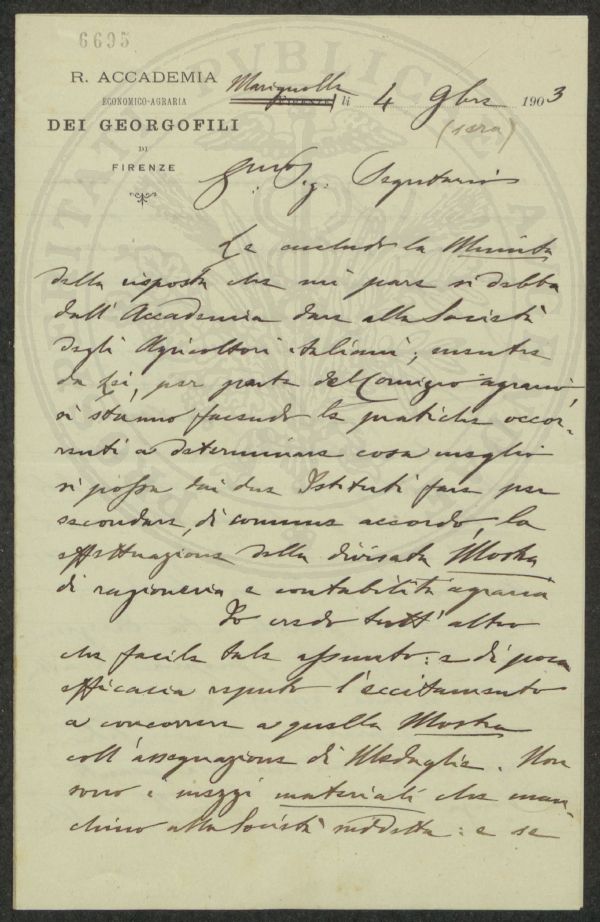 6695
R. ACCADEMIA
ECONOMICO-AGRARIA
DEI GEORGOFILI
DI
FIRENZE
Marignolle
FIRENZE li 4 9bre 1903
(sera)
Sig. Segretario
Le accludo la Minuta
della risposta che mi pare si debba
dall'Accademia dare alla Società
degli Agricoltori italiani; mentre
da Lei, per parte del Comizio agrario,
si stanno facendo le pratiche occor-
renti a determinare cosa meglio
si possa dai due Istituti fare per
secondare, di comune accordo, la
effettuazione della divisata Mostra
di ragioneria e contabilità agraria
Io credo tutt'altro
che facile tale assunto: e di poca
efficacia reputo l'eccitamento
a concorrere a quella Mostra
coll'assegnazione di Medaglie. Non
sono i mezzi materiali che man-
chino alla Società suddetta: e se